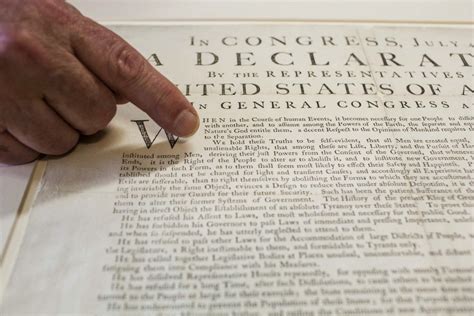 IN CONGRESS, JULY
A DECLARAT
BY THE REPRESENTATIVES
UNITED STATES OF A
IN GENERAL CONGRESS
WHEN in the Course of human Events, it becomes necessary for one People to
with another, and to assume among the Powers of the Earth, the separate and
Nature's God entitle them, a decent Respect to the Opinions of Mankind requires
to the Separation.
We hold these Truths to be self-evident, that all Men are created equal,
unalienable Rights, that among these are Life, Liberty, and the Pursuit of
instituted among Men,
Ends, it is the Right of the People to alter or to abolish it, and to institute new Government,
its Powers in such Form, as to them shall seem most likely to effect their Safety and Happiness.
tablished should not be changed for light and transient Causes; and accordingly all Experience
Evils are sufferable, than to right themselves by abolishing the Forms to which they are accustomed.
ing invariably the same Object, evinces a Design to reduce them under absolute Despotism, it is
and to provide new Guards for their future Security. Such has been the patient Sufferance of
them to alter their former Systems of Government. The History of the present King of Great
having in direct Object the Establishment of an absolute Tyranny over these States. To prove
He has refused his Assent to Laws, the most wholesome and necessary for the public Good.
He has forbidden his Governors to pass Laws of immediate and pressing Importance,
and when so suspended, he has utterly neglected to attend to them.
He has refused to pass other Laws for the Accommodation of large Districts of People,
the Legislature, a Right inestimable to them, and formidable to Tyrants only.
He has called together Legislative Bodies at Places unusual, uncomfortable, and distant
fatiguing them into Compliance with his Measures.
He has dissolved Representative Houses repeatedly, for opposing with manly Firmness
He has refused for a long Time, after such Dissolutions, to cause others to be
He has endeavoured to prevent the Population of these States; for that